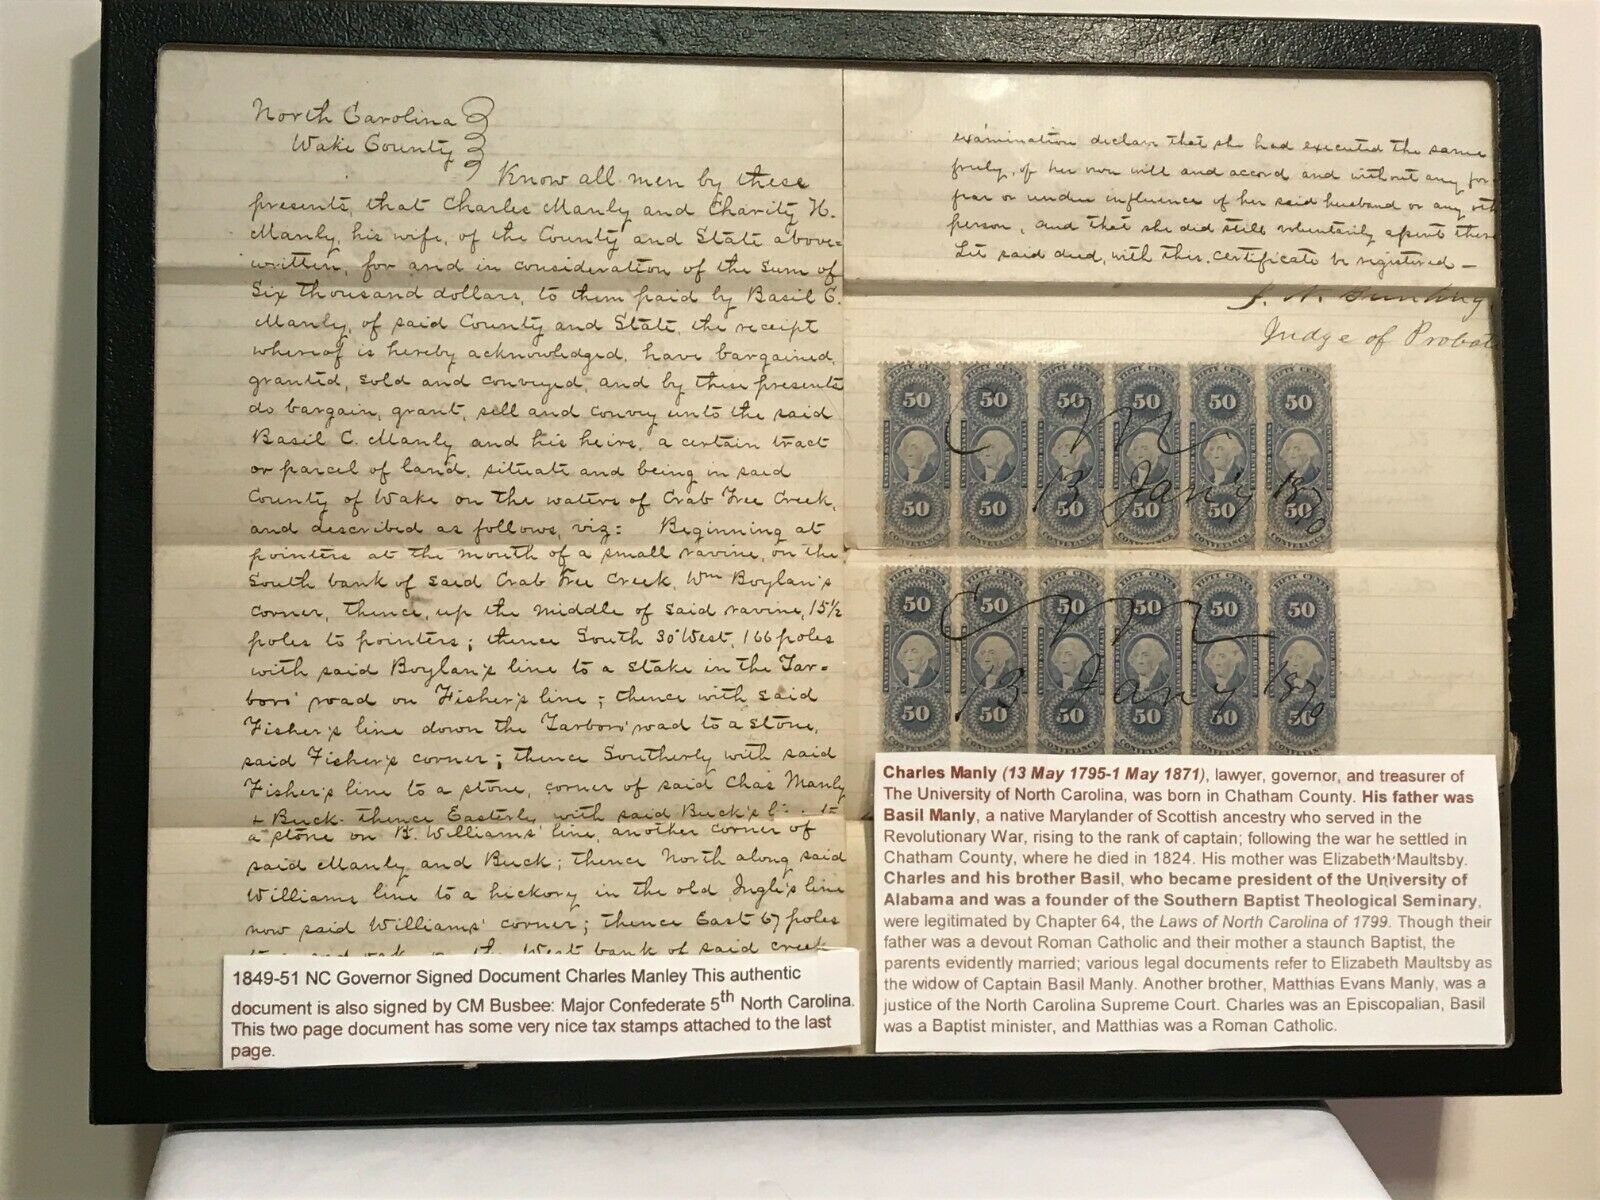 North Carolina
Wake County
Know all men by these
presents, that Charles Manly and Charity H.
Manly, his wife, of the County and State above=
written, for and in consideration of the sum of
Six thousand dollars, to them paid by Basil C.
Manly, of said County and State, the receipt
whereof is hereby acknowledged, have bargained,
granted, sold and conveyed, and by these presents
do bargain, grant, sell and convey unto the said
Basil C. Manly and his heirs, a certain tract
or parcel of land, situate and being in said
County of Wake on the waters of Crab Tree Creek,
and described as follows, viz: Beginning at
pointers at the mouth of a small ravine, on the
South bank of said Crab Tree Creek, Wm Boylan's
corner, thence, up the middle of said ravine, 15½
poles to pointers; thence South 30° West, 166 poles
with said Boylan's line to a stake in the Tar-
boro' road on Fisher's line; thence with said
Fisher's line down the Tarboro' road to a stone,
said Fisher's corner; thence Southerly with said
Fisher's line to a stone, corner of said Chas Manly
+ Buck. thence Easterly with said Buck's
a stone on B. Williams' line, another corner of
said Manly and Buck; thence North along said
Williams line to a hickory in the old Ingle's line
now said Williams' corner; thence East 67 poles
West bank of said creek
examination declare that she had executed the same
freely, of her own will and accord and without any for
fear or undue influence of her said husband or any oth
person, and that she did still voluntarily assent there
Let said deed, with this certificate be registered —
J. N. Bunting
Judge of Probate
FIFTY CENTS FIFTY CENTS FIFTY CENTS FIFTY CENTS FIFTY CENTS FIFTY CENTS
50 50 50 50 50 50
C M
13 Jan'y 1870
50 50 50 50 50 50
CONVEYANCE CONVEYANCE CONVEYANCE CONVEYANCE CONVEYANCE CONVEYANCE
FIFTY CENTS FIFTY CENTS FIFTY CENTS FIFTY CENTS FIFTY CENTS FIFTY CENTS
50 50 50 50 50 50
C M
13 Jany 1870
50 50 50 50 50 50
CONVEYANCE CONVEYANCE CONVEYANCE CONVEYANCE CONVEYANCE CONVEYANCE
1849-51 NC Governor Signed Document Charles Manley This authentic
document is also signed by CM Busbee: Major Confederate 5th North Carolina.
This two page document has some very nice tax stamps attached to the last
page.
Charles Manly (13 May 1795-1 May 1871), lawyer, governor, and treasurer of
The University of North Carolina, was born in Chatham County. His father was
Basil Manly, a native Marylander of Scottish ancestry who served in the
Revolutionary War, rising to the rank of captain; following the war he settled in
Chatham County, where he died in 1824. His mother was Elizabeth Maultsby.
Charles and his brother Basil, who became president of the University of
Alabama and was a founder of the Southern Baptist Theological Seminary,
were legitimated by Chapter 64, the Laws of North Carolina of 1799. Though their
father was a devout Roman Catholic and their mother a staunch Baptist, the
parents evidently married; various legal documents refer to Elizabeth Maultsby as
the widow of Captain Basil Manly. Another brother, Matthias Evans Manly, was a
justice of the North Carolina Supreme Court. Charles was an Episcopalian, Basil
was a Baptist minister, and Matthias was a Roman Catholic.